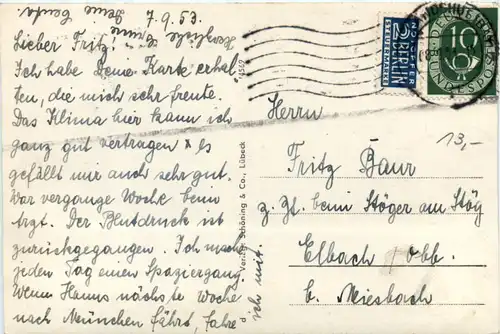 7.9.53.
Lieber Fritz!
Ich habe Deine Karte erhal-
ten, die mich sehr freute.
Das Klima hier kann ich
ganz gut vertragen u. es
gefällt mir auch sehr gut.
War vergangne Woche beim
Arzt. Der Blutdruck ist
zurückgegangen. Ich mache
jeden Tag einen Spaziergang.
Wenn Hanns nächste Woche
nach München fährt, fahre
ich mit.
Herzliche Grüße
Deine Centa.
Verlag Schöning & Co., Lübeck
NOTOPFER
2 BERLIN
STEUERMARKE
10
DEUTSCHE BUNDESPOST
Herrn
13,-
Fritz Baur
z. Zt. beim Stöger am Stög
Elbach / Obb.
b. Miesbach